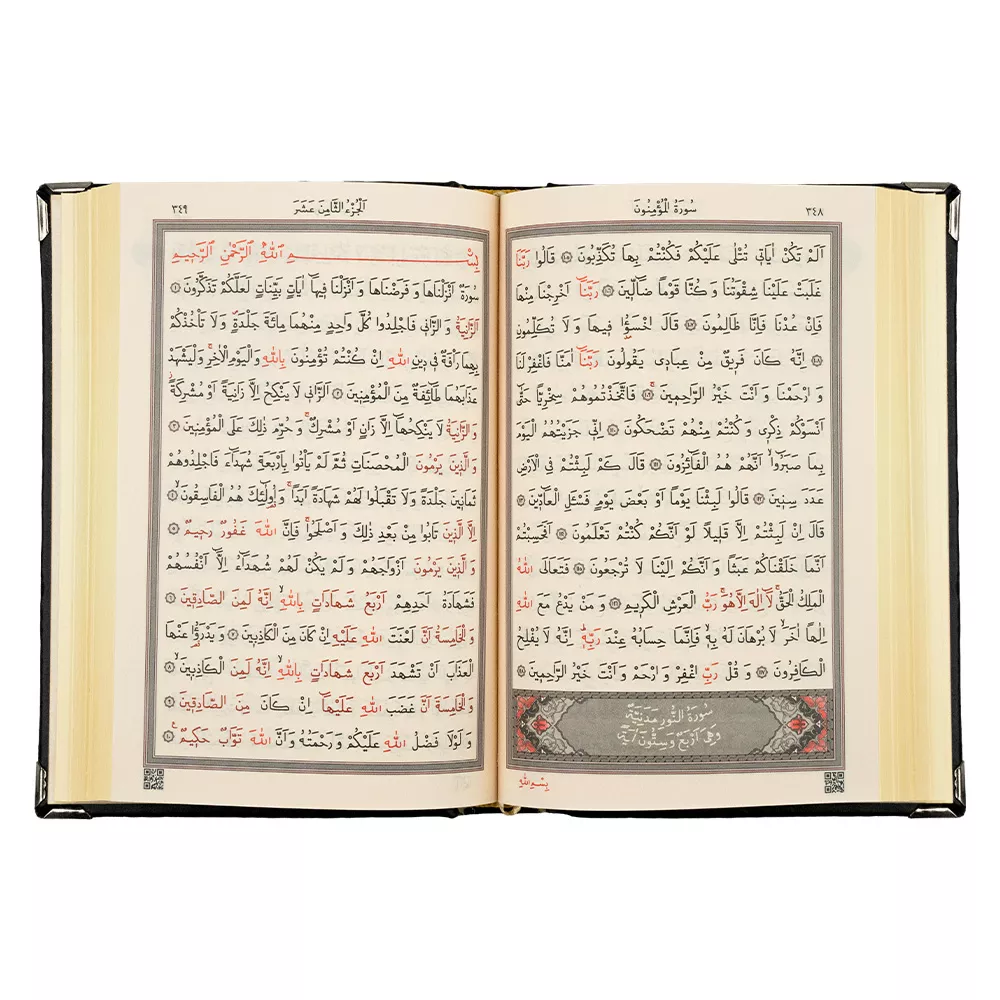 ٣٤٨
سُورَةُ الْمُؤْمِنُونَ
اَلَمْ تَكُنْ اٰيَاتٖي تُتْلٰى عَلَيْكُمْ فَكُنْتُمْ بِهَا تُكَذِّبُونَ ﴿١٠٥﴾ قَالُوا رَبَّنَا
غَلَبَتْ عَلَيْنَا شِقْوَتُنَا وَكُنَّا قَوْمًا ضَٓالّٖينَ ﴿١٠٦﴾ رَبَّنَٓا اَخْرِجْنَا مِنْهَا
فَاِنْ عُدْنَا فَاِنَّا ظَالِمُونَ ﴿١٠٧﴾ قَالَ اخْسَؤُ۫ا فٖيهَا وَلَا تُكَلِّمُونِ
﴿١٠٨﴾ اِنَّهُ كَانَ فَرٖيقٌ مِنْ عِبَادٖي يَقُولُونَ رَبَّنَٓا اٰمَنَّا فَاغْفِرْ لَنَا
وَارْحَمْنَا وَاَنْتَ خَيْرُ الرَّاحِمٖينَ ﴿١٠٩﴾ فَاتَّخَذْتُمُوهُمْ سِخْرِيًّا حَتّٰٓى
اَنْسَوْكُمْ ذِكْرٖي وَكُنْتُمْ مِنْهُمْ تَضْحَكُونَ ﴿١١٠﴾ اِنّٖي جَزَيْتُهُمُ الْيَوْمَ
بِمَا صَبَرُٓوا اَنَّهُمْ هُمُ الْفَٓائِزُونَ ﴿١١١﴾ قَالَ كَمْ لَبِثْتُمْ فِي الْاَرْضِ
عَدَدَ سِنٖينَ ﴿١١٢﴾ قَالُوا لَبِثْنَا يَوْمًا اَوْ بَعْضَ يَوْمٍ فَسْـَٔلِ الْعَٓادّٖينَ ﴿١١٣﴾
قَالَ اِنْ لَبِثْتُمْ اِلَّا قَلٖيلًا لَوْ اَنَّكُمْ كُنْتُمْ تَعْلَمُونَ ﴿١١٤﴾ اَفَحَسِبْتُمْ
اَنَّمَا خَلَقْنَاكُمْ عَبَثًا وَاَنَّكُمْ اِلَيْنَا لَا تُرْجَعُونَ ﴿١١٥﴾ فَتَعَالَى اللّٰهُ
الْمَلِكُ الْحَقُّۚ لَٓا اِلٰهَ اِلَّا هُوَۚ رَبُّ الْعَرْشِ الْكَرٖيمِ ﴿١١٦﴾ وَمَنْ يَدْعُ مَعَ اللّٰهِ
اِلٰهًا اٰخَرَۙ لَا بُرْهَانَ لَهُ بِهٖۙ فَاِنَّمَا حِسَابُهُ عِنْدَ رَبِّهٖؕ اِنَّهُ لَا يُفْلِحُ
الْكَافِرُونَ ﴿١١٧﴾ وَقُلْ رَبِّ اغْفِرْ وَارْحَمْ وَاَنْتَ خَيْرُ الرَّاحِمٖينَ ﴿١١٨﴾
سُورَةُ النُّورِ مَدَنِيَّةٌ
وَهِيَ اَرْبَعٌ وَسِتُّونَ اٰيَةً
بِسْمِ اللّٰهِ
اَلْجُزْءُ الثَّامِنَ عَشَرَ
٣٤٩
بِسْمِ اللّٰهِ الرَّحْمٰنِ الرَّحٖيمِ
سُورَةٌ اَنْزَلْنَاهَا وَفَرَضْنَاهَا وَاَنْزَلْنَا فٖيهَٓا اٰيَاتٍ بَيِّنَاتٍ لَعَلَّكُمْ تَذَكَّرُونَ ﴿١﴾
اَلزَّانِيَةُ وَالزَّانٖي فَاجْلِدُوا كُلَّ وَاحِدٍ مِنْهُمَا مِائَةَ جَلْدَةٍۖ وَلَا تَأْخُذْكُمْ
بِهِمَا رَأْفَةٌ فٖي دٖينِ اللّٰهِ اِنْ كُنْتُمْ تُؤْمِنُونَ بِاللّٰهِ وَالْيَوْمِ الْاٰخِرِۚ وَلْيَشْهَدْ
عَذَابَهُمَا طَٓائِفَةٌ مِنَ الْمُؤْمِنٖينَ ﴿٢﴾ اَلزَّانٖي لَا يَنْكِحُ اِلَّا زَانِيَةً اَوْ مُشْرِكَةًؗ
وَالزَّانِيَةُ لَا يَنْكِحُهَٓا اِلَّا زَانٍ اَوْ مُشْرِكٌۚ وَحُرِّمَ ذٰلِكَ عَلَى الْمُؤْمِنٖينَ ﴿٣﴾
وَالَّذٖينَ يَرْمُونَ الْمُحْصَنَاتِ ثُمَّ لَمْ يَأْتُوا بِاَرْبَعَةِ شُهَدَٓاءَ فَاجْلِدُوهُمْ
ثَمَانٖينَ جَلْدَةً وَلَا تَقْبَلُوا لَهُمْ شَهَادَةً اَبَدًاۚ وَاُو۬لٰٓئِكَ هُمُ الْفَاسِقُونَ ﴿٤﴾
اِلَّا الَّذٖينَ تَابُوا مِنْ بَعْدِ ذٰلِكَ وَاَصْلَحُواۚ فَاِنَّ اللّٰهَ غَفُورٌ رَحٖيمٌ ﴿٥﴾
وَالَّذٖينَ يَرْمُونَ اَزْوَاجَهُمْ وَلَمْ يَكُنْ لَهُمْ شُهَدَٓاءُ اِلَّٓا اَنْفُسُهُمْ
فَشَهَادَةُ اَحَدِهِمْ اَرْبَعُ شَهَادَاتٍ بِاللّٰهِۙ اِنَّهُ لَمِنَ الصَّادِقٖينَ ﴿٦﴾
وَالْخَامِسَةُ اَنَّ لَعْنَتَ اللّٰهِ عَلَيْهِ اِنْ كَانَ مِنَ الْكَاذِبٖينَ ﴿٧﴾ وَيَدْرَؤُ۬ا عَنْهَا
الْعَذَابَ اَنْ تَشْهَدَ اَرْبَعَ شَهَادَاتٍ بِاللّٰهِۙ اِنَّهُ لَمِنَ الْكَاذِبٖينَۙ ﴿٨﴾
وَالْخَامِسَةَ اَنَّ غَضَبَ اللّٰهِ عَلَيْهَٓا اِنْ كَانَ مِنَ الصَّادِقٖينَ ﴿٩﴾
وَلَوْلَا فَضْلُ اللّٰهِ عَلَيْكُمْ وَرَحْمَتُهُ وَاَنَّ اللّٰهَ تَوَّابٌ حَكٖيمٌ ﴿١٠﴾